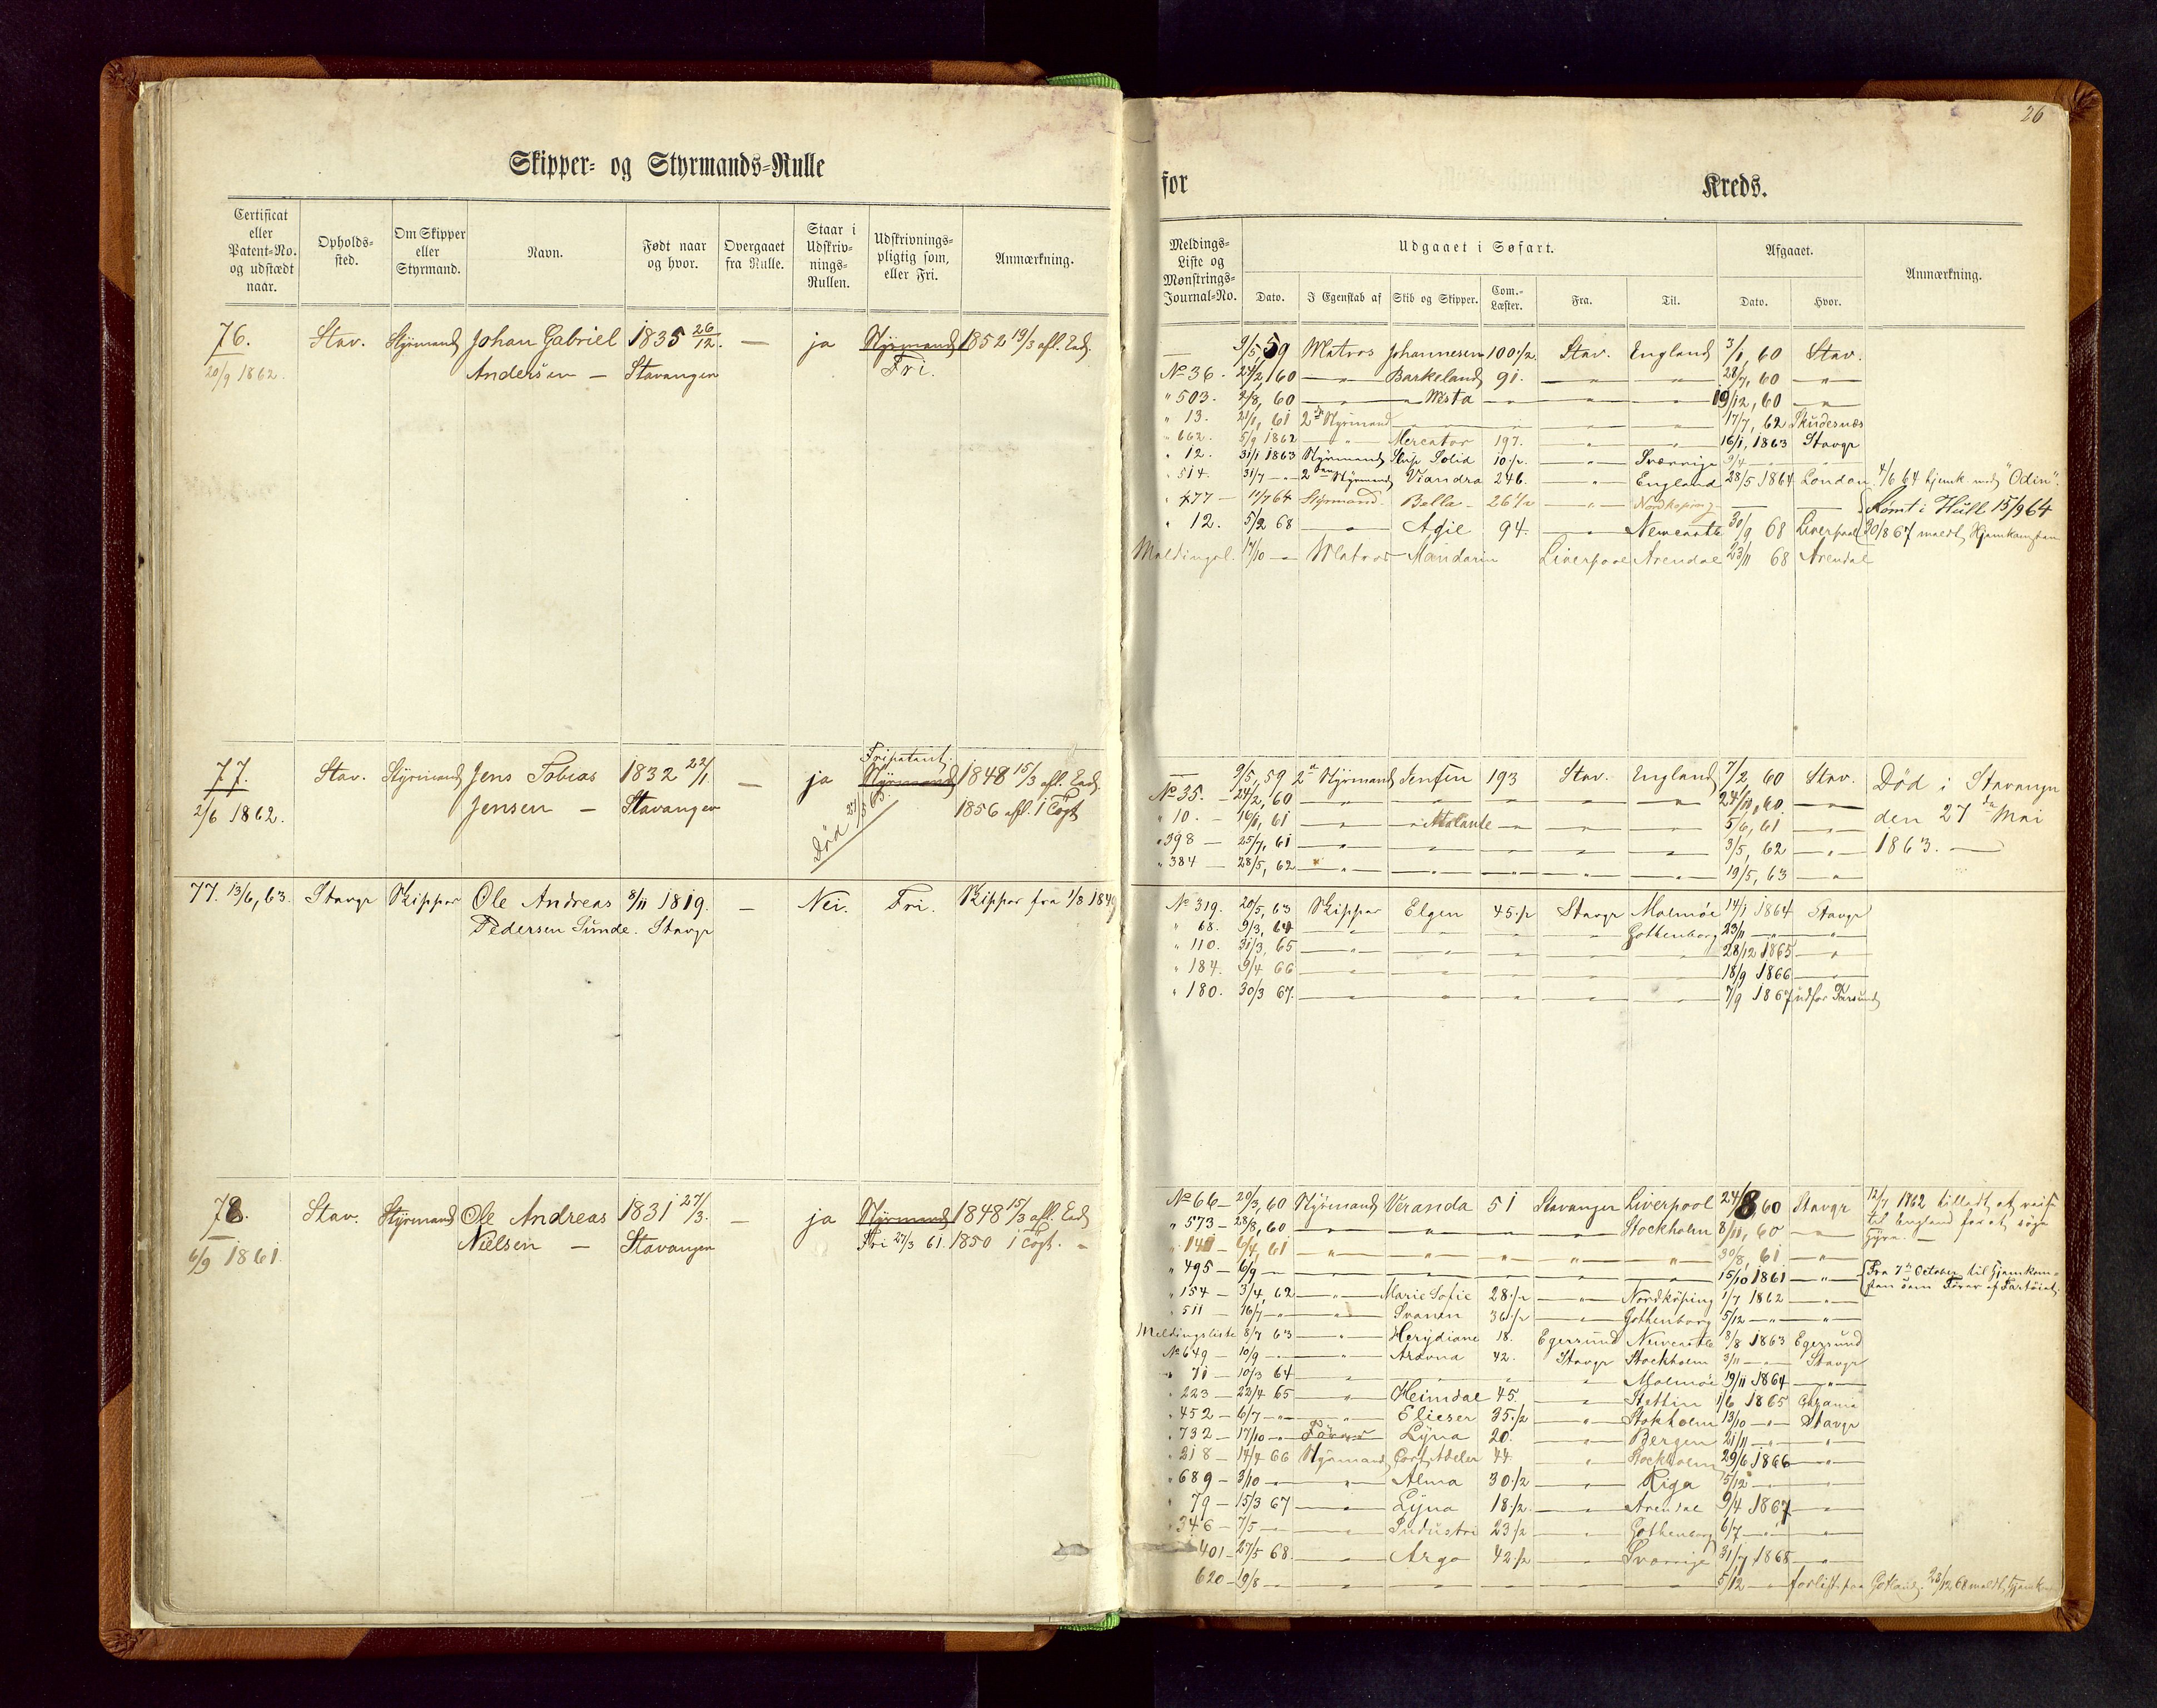 26
Skipper- og Styrmands-Rulle
for
Kreds.
Certificat eller Patent-No. og udstædt naar.
Opholds-sted.
Om Skipper eller Styrmand.
Navn.
Født naar og hvor.
Overgaaet fra Rulle.
Staar i Udskriv-nings-Rullen.
Udskrivnings-pligtig som, eller Fri.
Anmærkning.
Meldings-Liste og Mønstrings-Journal-No.
Udgaaet i Søfart.
Dato.
I Egenskab af
Skib og Skipper.
Com.-Læster.
Fra.
Til.
Afgaaet.
Dato.
Hvor.
Anmærkning.
76. Stav. Styrmand Johan Gabriel 1835 26/12. — ja Styrmand 1852 19/3 afl. Eed.
20/9 1862. Andersen — Stavanger Fri.
— 9/5, 59 Matros Johannesen 100 1/2 Stav. England 3/1, 60 Stav.
No 36. 24/2, 60 — " — Barkeland 91. — " — — " — 28/7, 60 — " —
" 503. 2/8, 60 — " — Vesta — " — 19/12, 60 — " —
" 13. 21/1, 61 2den Styrmand — " — 17/7, 62 Skudesnæs
" 662. 5/9 1862 — " — Mercator 197. — " — — " — 16/1, 1863 Stavgr
" 12. 31/1 1863 Styrmand Slup Solid 10 1/2. — " — Sverrige 9/4 — " —
" 514. 31/7 — " — 2den Styrmand Viandra 246. — " — England 28/5 1864 London 4/6 64 hjemk med "Odin".
" 477 — 11/7 64 Styrmand. Bella — 26 1/2 — " — Nordkøping — — Rømt i Hull 15/9 64
" 12. 5/2 68 — " — Agie 94. — " — Newcastle 30/9 68 Liverpool 30/8 67 meldt Hjemkomsten
Meldingsl. 17/10 — " Matros Mandarin Liverpool Arendal 23/11 68 Arendal
77. Stav. Styrmand Jens Tobias 1832 22/1 — ja Fripatent. Styrmand 1848 15/3 afl. Eed.
2/6 1862. Jensen — Stavanger Død 27/5 63 1856 afl. i Togt
— 9/5, 59 2den Styrmand Jensen 193 Stav. England 7/2, 60 Stav. Død i Stavanger
No 35. — 24/2, 60 — " — 24/11, 60 — " — den 27de Mai
" 10. — 16/1, 61 — " — Atalante — " — 5/6, 61 — " — 1863. —
" 398 — 25/7, 61 — " — 3/5, 62 — " —
" 384 — 28/5, 62 — " — 19/5, 63 — " —
77. 13/6, 63. Stavgr Skipper Ole Andreas 8/11 1819. — Nei. Fri. Skipper fra 1/8 1849
Pedersen Tunde. Stavgr
No 319. 20/5, 63 Skipper Elgen 45 1/2 Stavgr Malmöe 14/1 1864 Stavgr
" 68. 9/3, 64 — " — Gothenborg 23/11 — " —
" 110. 31/3, 65 — " — 28/12 1865 — " —
" 184. 9/4 66 — " — 18/9 1866 — " —
" 180. 30/3 67. — " — 7/9 1867 udfor Farsund
78. Stav. Styrmand Ole Andreas 1831 27/3. — ja Styrmand 1848 15/3 afl. Eed
6/9 1861. Nielsen — Stavanger Fri 27/3 61. 1850 i Togt. —
No 66 — 20/3, 60 Styrmand Veranda 51 Stavanger Liverpool 24/8 60 Stavgr 12/7 1862 tilladt at reise
" 573 — 28/8, 60 — " — Stockholm 8/11, 60 — " — til England for at søge
" 141 — 6/4, 61 — " — 30/8, 61 — " — Hyre. —
" 495 — 6/9 — " — 15/10 1861 — " — Fra 7de October til Hjemkom-
" 154 — 3/4, 62 — " — Marie Sofie 28 1/2 — " — Nordköping 1/7 1862 — " — sten som Fører af Fartøiet.
" 511 — 16/7 — " — Svanen 36 1/2 — " — Gothenborg 5/12 — " —
Meldingsliste 8/7 63 — " — Herydiane 18. Egersund Newcastle 8/8 1863 Egersund
No 649 — 10/9 — " — Arovna 42. Stavgr Stockholm 3/11 — " — Stavgr
" 71 — 10/3 64 — " — Malmöe 19/11 1864 — " —
" 223 — 22/4 65 — " — Heimdal 45. — " — Stettin 1/6 1865
" 452 — 6/7 — " — Elieser 35 1/2 — " — Stokholm 13/10 — " — Stavgr
" 732 — 17/10 — " Fører Lyna 20. — " — Bergen 21/11 — " —
" 218 — 14/4 66 Styrmand Cort Adeler 44 — " — Stockholm 29/6 1866 — " —
" 689 — 3/10 — " — Alma 30 1/2 — " — Riga 15/12 — " —
" 79 — 15/3 67 — " — Lyna 18 1/2 — " — Arendal 9/4 1867 — " —
" 346 — 7/5 — " — Industri 23 1/2 — " — Gothenborg 6/7 — " —
401 — 27/5 68. — " — Argo 42 1/2 — " — Sverrige 31/7 1868 — " —
620 — 19/8 — " — 5/12 — " forlist paa Gotland. 28/12 68 meldt Hjemkomst